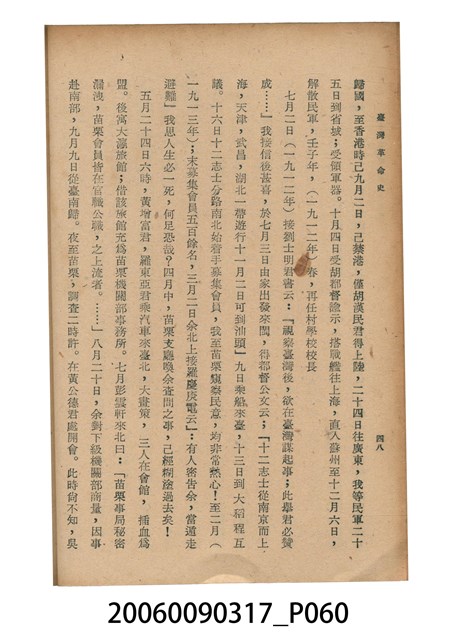 臺灣革命史
四八
歸國，至香港時己九月二日，己禁港，僅胡漢民君得上陸，二十四日往廣東，我等民軍二十
五日到省城；受領軍器。十月四日受胡都督諭示，搭戰艦往上海，直入蘇州至十二月六日，
解散民軍，壬子年，（一九一二年）春，再任村學校校長
七月二日（一九一二年）接劉士明君書云：「視察臺灣後，欲在臺灣謀起事；此舉君必贊
成……」我接信後甚喜，於七月三日由家出發來閩，得都督公文云；「十二志士從南京而上
海，天津，武昌，湖北一帶遊行十一月二日可到汕頭」九日乘船來臺，十三日到大稻程互
議。十六日十二志士分路南北始着手募集會員，我至苗栗窺察民意，均非常熱心！至二月（
一九一三年）；末募集會員五百餘名，三月二日余北上接羅慶庚電云：「有人密告余，當道走
避難」我思人生必一死，何足恐哉？四月中，苗栗支廳喚余査問之事，己經糊塗過去矣！
五月二十四日六時，黃增富君，羅東亞君乘汽車來臺北，大畫策，三人在會館，插血爲
盟。後寓大瀛旅館；借該旅館充爲苗栗機關部事務所。七月彭雲軒來北曰：「苗栗事局秘密
漏洩，苗栗會員皆在官職公職，之上流者。……」八月二十日，余對下級機關部商量，因事
赴南部，九月九日從臺南歸。夜至苗栗，調查二時許。在黃公德君處開會。此時尙不知，吳
20060090317_P060